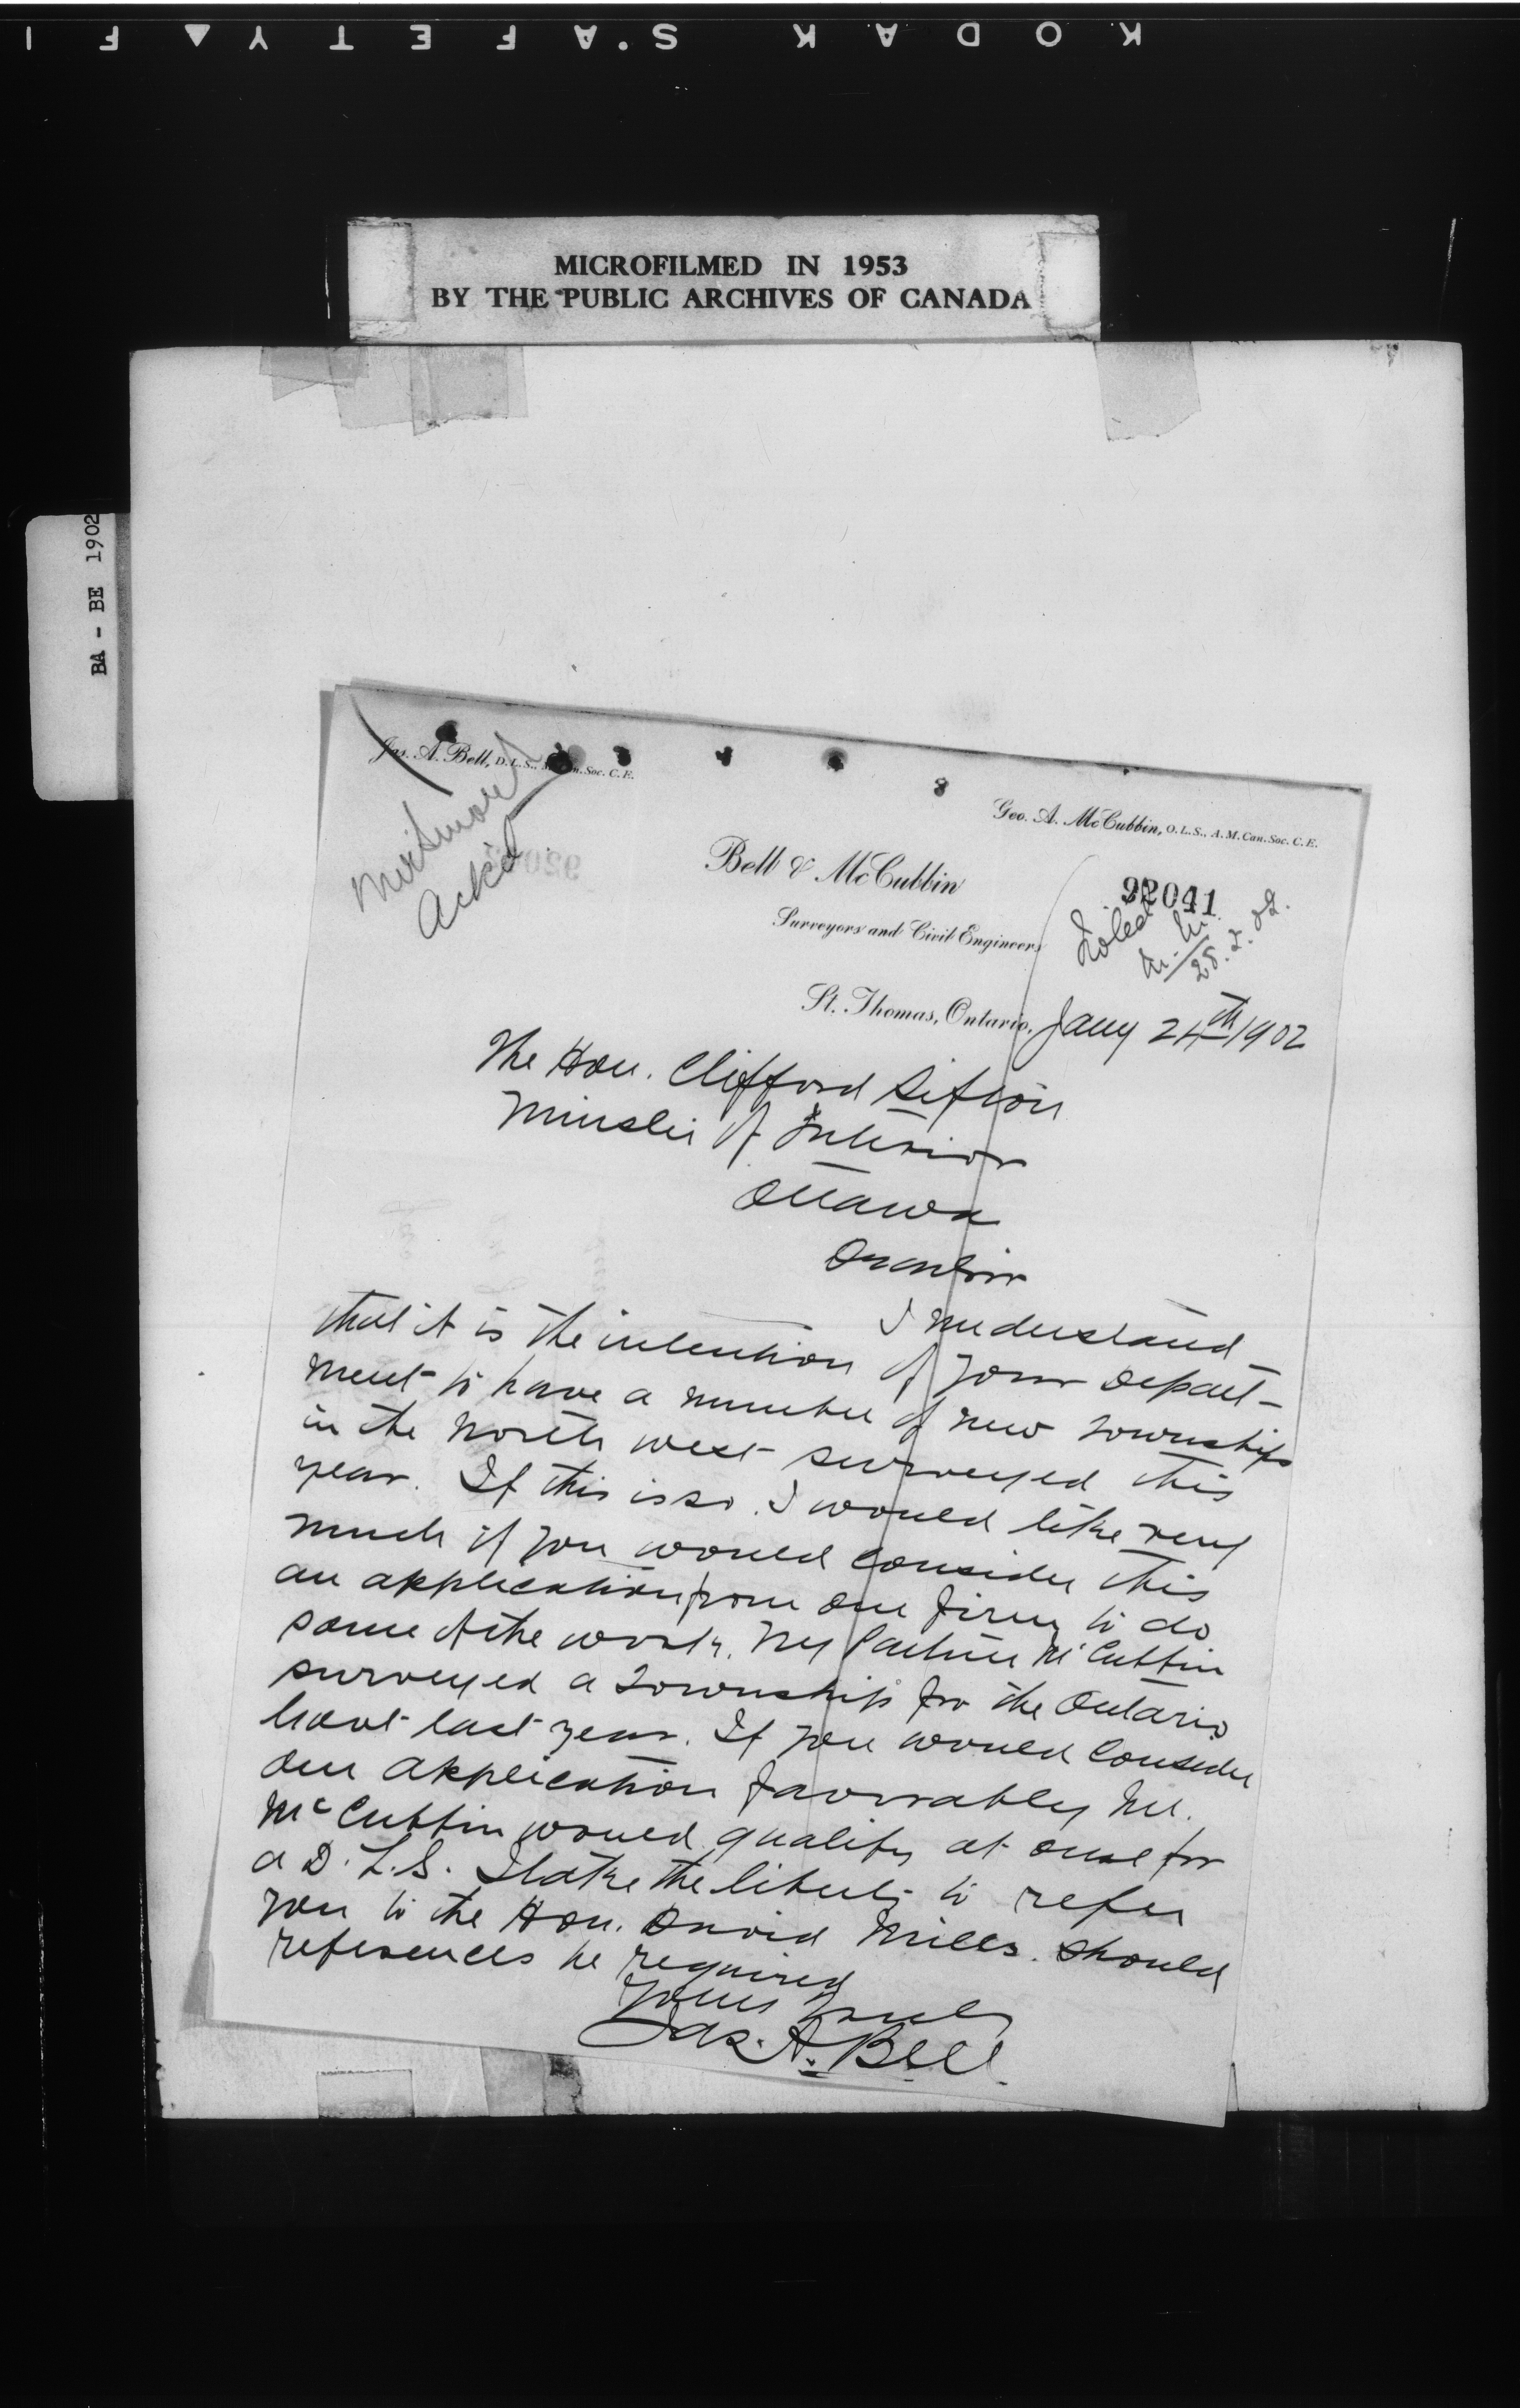 KODAK S'AFETY F I
MICROFILMED IN 1953
BY THE PUBLIC ARCHIVES OF CANADA
BA - BE 1902
Jas. A. Bell, D.L.S., M. Can. Soc. C.E.
Geo. A. McCubbin, O.L.S., A.M. Can. Soc. C.E.
Ackd
Bell & McCubbin
92041
Surveyors and Civil Engineers
St. Thomas, Ontario, Jany 24th 1902
The Hon. Clifford Sifton
Minister of Interior
Ottawa
Dear Sir
I understand
that it is the intention of your Depart-
ment to have a number of new Townships
in the North west surveyed this
year. If this is so I would like very
much if you would consider this
an application from our firm to do
some of the work. My Partner McCubbin
surveyed a Township for the Ontario
Govt last year. If you would consider
our application favorably Mr.
McCubbin would qualify at once for
a D.L.S. I take the liberty to refer
you to the Hon. David Mills. Should
references be required
Yours truly
Jas. A. Bell.